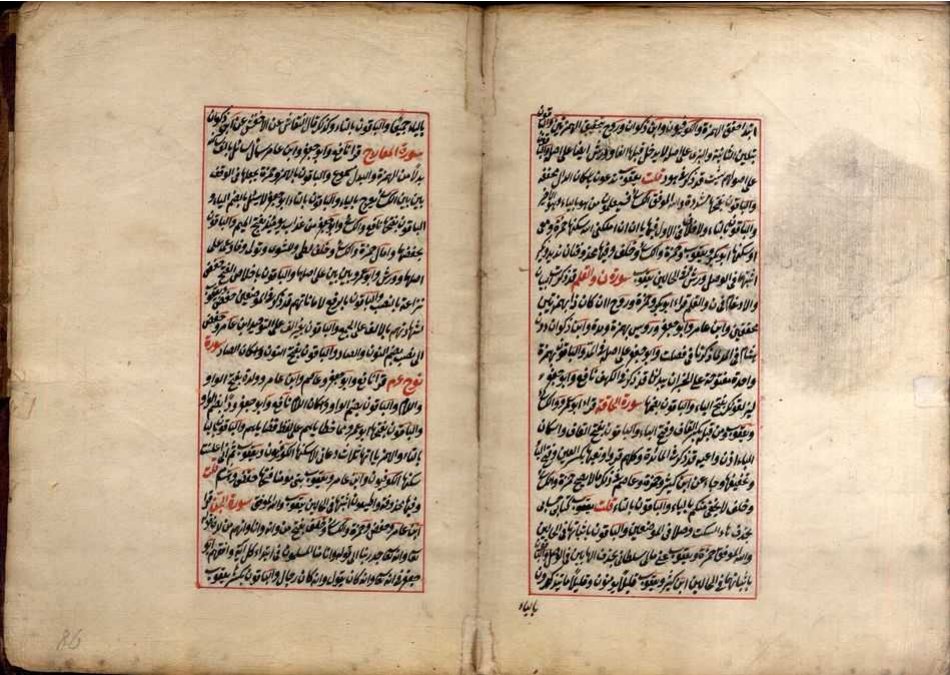 ابتدا حقق الهمزة والكوفيون وابن ذكوان وروح بتحقيق الهمزتين والباقون
بتليين الثانية
على اصولهم سيئت قد ذكر في هود قلت يعقوب تدعون باسكان الدال مخففة
والباقون بفتحها مشددة والله الموفق الكسائي فسيعلمون من هو بالياء
والباقون بالتاء
اسكنها ابوبكر ويعقوب وحمزة والكسائي وخلف
اثبتها في الوصل ورش وفي الحالين يعقوب سورة ن والقلم قد ذكرت
والادغام في ن والقلم قرا ابوبكر وحمزة وروح اان كان ذا بهمزتين
محققتين وابن عامر وابوجعفر ورويس بهمزة ومدة وابن ذكوان دون
هشام في المد لما ذكرنا في فصلت وابوجعفر على اصله في المد والباقون بهمزة
واحدة مفتوحة على الخبر ان يبدلنا قد ذكر في الكهف نافع وابوجعفر
ليزلقونك بفتح الياء والباقون بضمها سورة الحاقة قرا ابوعمرو والكسائي
ويعقوب ومن قبله بكسر القاف وفتح الباء والباقون بفتح القاف واسكان
الباء اذن واعية قد ذكر في المائدة وكلهم قرا وتعيها بكسر العين وفتح الياء
وتخفيفها وجاء عن ابن كثير وحمزة وعاصم في ذلك ما لا يصح حمزة والكسائي
وخلف لا يخفى منكم بالياء والباقون بالتاء قلت يعقوب كتابيه حسابيه
بحذف هاء السكت وصلا في الموضعين والباقون باثباتها في الحالين
والله الموفق حمزة ويعقوب عني ماليه سلطانيه بحذف الهاءين في الوصل
باثباتهما في الحالين ابن كثير ويعقوب قليلا ما يومنون وقليلا ما يذكرون
بالياء
بالياء جميعا والباقون بالتاء وكذلك قال النقاش عن الاخفش عن ابن ذكوان
سورة المعارج قرا نافع وابوجعفر وابن عامر سال سائل بالف ساكنة
بدلا من الهمزة والبدل مسموع والباقون بالهمز وحمزة يجعلها في الوقف
بين بين الكسائي يعرج بالياء والباقون بالتاء ابوجعفر ولا يسئل بضم الياء
الباقون بفتحها نافع والكسائي وابوجعفر من عذاب يومئذ بفتح الميم والباقون
بخفضها وامال حمزة والكسائي وخلف لظى وللشوى وتولى وفاوعى على
اصلهم وورش وابوعمرو بين بين على اصلهما والباقون باخلاص الفتح حفص
نزاعة بالنصب والباقون بالرفع لاماناتهم قد ذكر في المؤمنين حفص ويعقوب
بشهاداتهم بالالف على الجمع والباقون بغير الف على التوحيد ابن عامر وحفص
الى نصب بضم النون والصاد والباقون بفتح النون واسكان الصاد سورة
نوح عم قرا نافع وابوجعفر وعاصم وابن عامر وولده بفتح الواو
واللام والباقون بضم الواو واسكان اللام نافع وابوجعفر ودا بضم الواو
والباقون بفتحها ابوعمرو مما خطاياهم على لفظ قضاياهم والباقون بالياء
والتاء والهمز ياءاتها ثلاث دعاءي الا سكنها الكوفيون ويعقوب ثم اني اعلنت
سكنها الكوفيون وابن عامر ويعقوب بيتي مومنا فتحها حفص وهشام قلت
وفيها محذوفة واطيعون اثبتها في الحالين يعقوب والله الموفق سورة الجن قرا
ابن عامر وحفص وحمزة والكسائي وخلف بفتح الهمزة من وانه وانا وانهم من لدن قوله
تعالى وانه تعالى جد ربنا الى قوله وانا منا المسلمون في ابتداء كل اية وافقهم ابو
جعفر في وانه تعالى وانه كان يقول وانه كان رجال والباقون بكسرها يعقوب
86